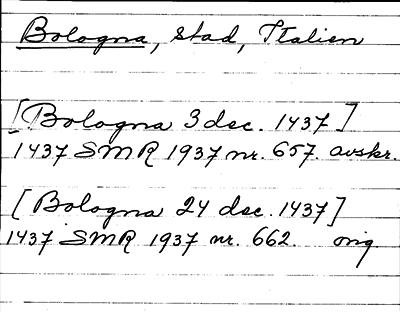 Bologna, stad, Italien
[Bologna 3 dec. 1437]
1437 SMR 1937 nr. 657. avskr.
[Bologna 24 dec. 1437]
1437 SMR 1937 nr. 662. orig